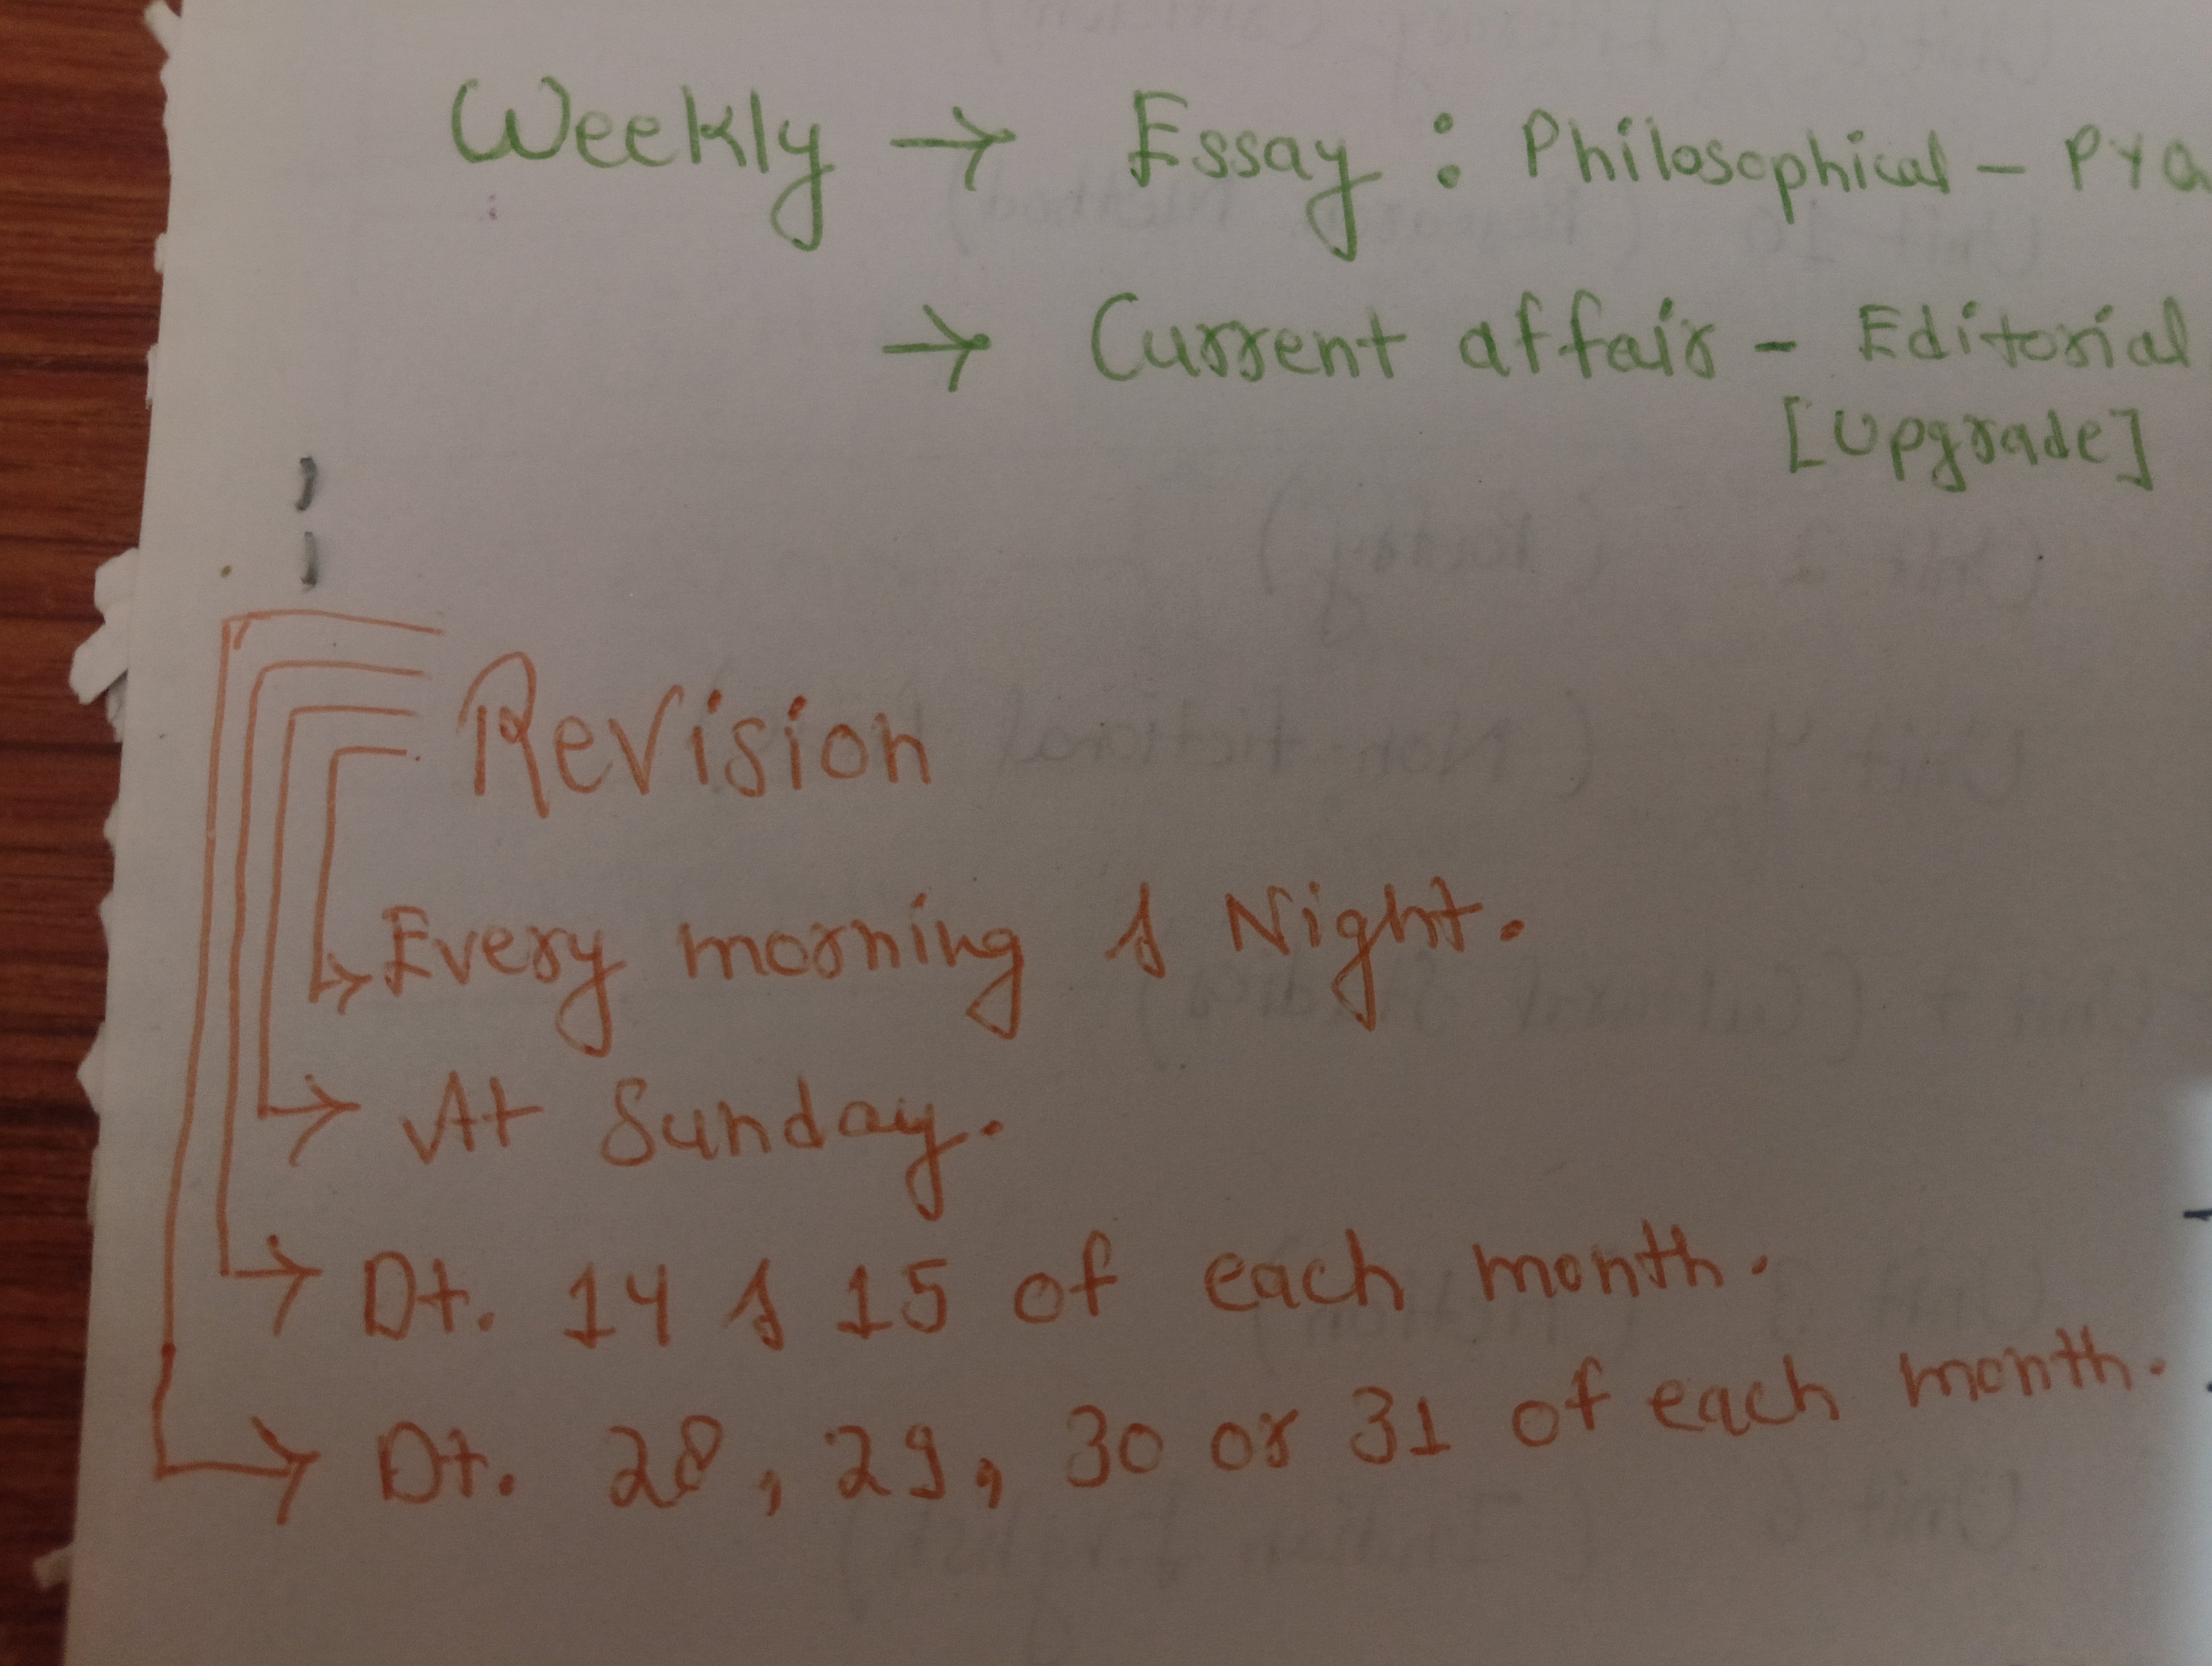 Weekly → Essay : Philosophical - PYQ
→ Current affair - Editorial
[Upgrade]
Revision
Every morning & Night.
At Sunday.
Dt. 14 & 15 of each month.
Dt. 28, 29, 30 or 31 of each month.